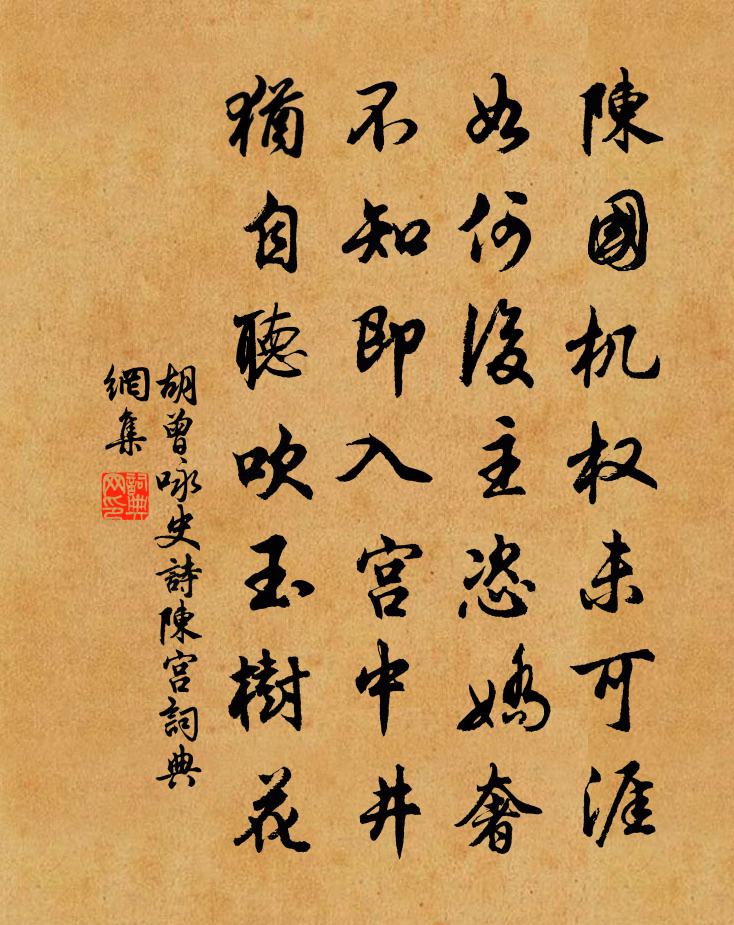 陳國机权未可涯
如何後主恣嬌奢
不知即入宫中井
猶自聽吹玉樹花
胡曾咏史詩陳宫詞典
網集
詞典
网印